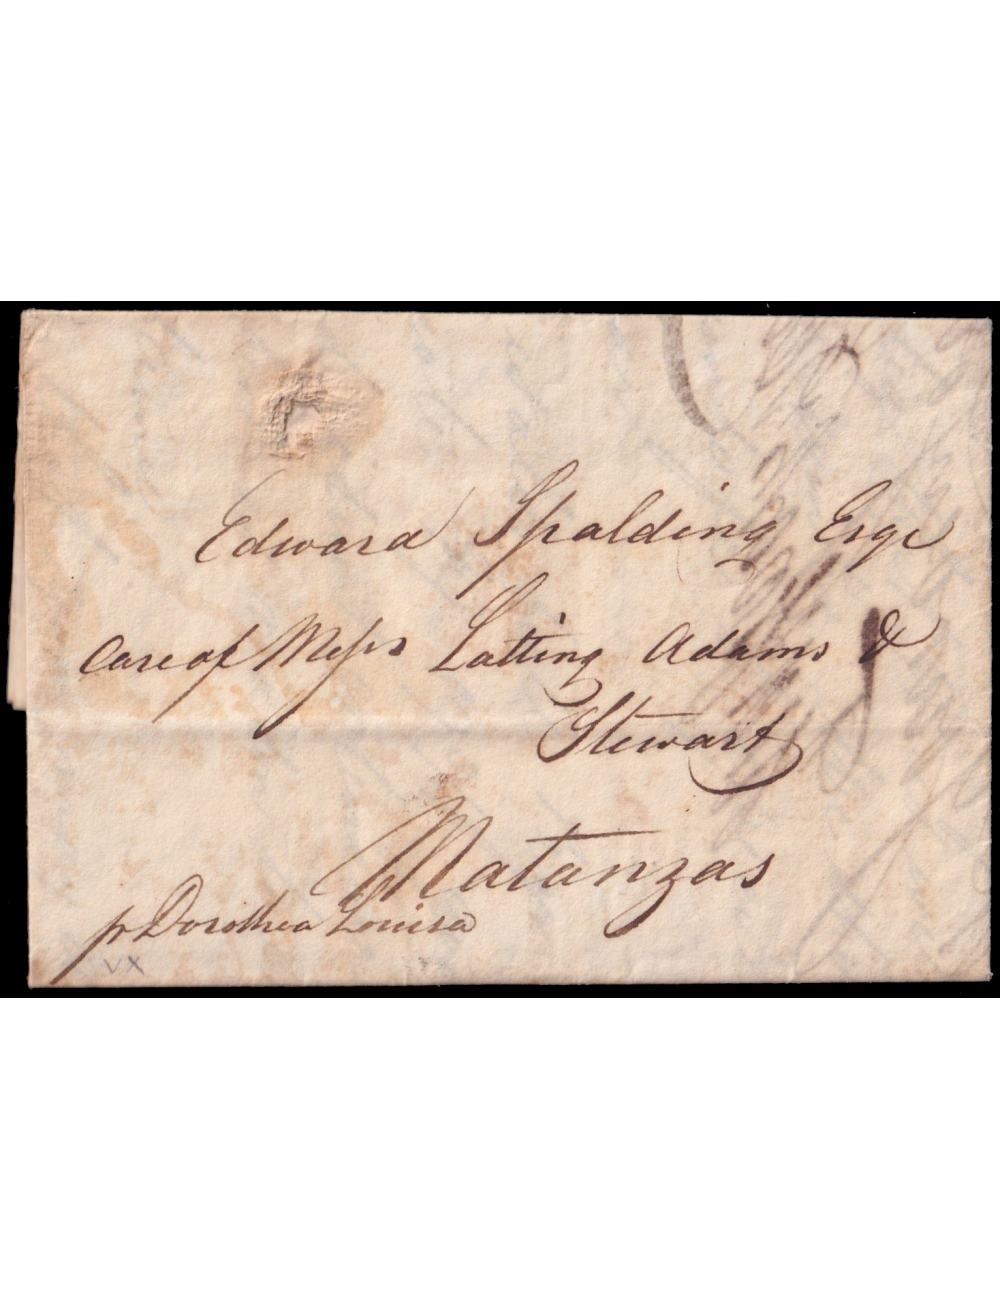 Edward Spalding Esqr
Care of Messrs Latting Adams &
Stewart
Matanzas
p Dorothea Louisa
VX